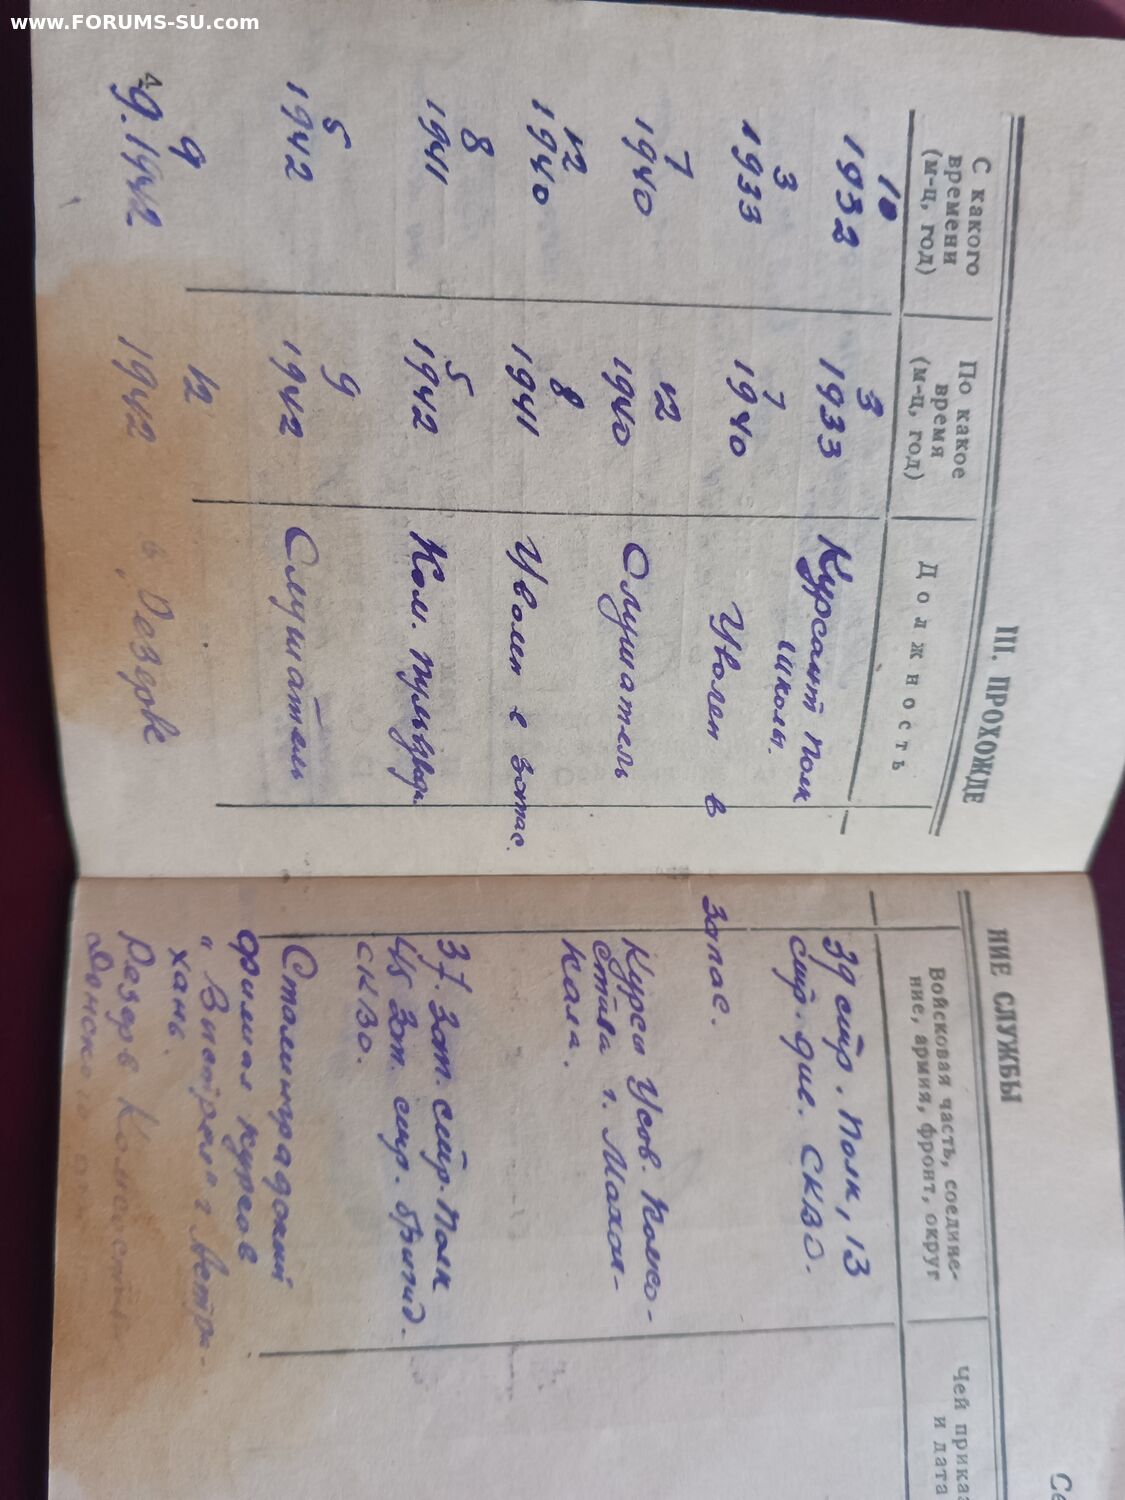 www.FORUMS-SU.com
III. ПРОХОЖДЕ
С какого
времени
(м-ц, год)
По какое
время
(м-ц, год)
Должность
10
1932
3
1933
Курсант полк
школы.
3
1933
7
1940
Уволен в
7
1940
12
1940
Слушатель
12
1940
8
1941
Уволен в запас.
8
1941
5
1942
Ком. пульвзвода.
5
1942
9
1942
Слушатель
9
9.1942
12
1942
в резерве
НИЕ СЛУЖБЫ
Войсковая часть, соедине-
ние, армия, фронт, округ
Чей приказ
и дата
39 стр. полк, 13
стр. див. СКВО.
запас.
Курсы Усов. Комсо-
става г. Махач-
кала.
37. зап. стр. полк
45 зап. стр. бригад.
СКВО.
Сталинградский
филиал курсов
"Выстрел" г Астра-
хань.
Резерв Комсостава
Донского